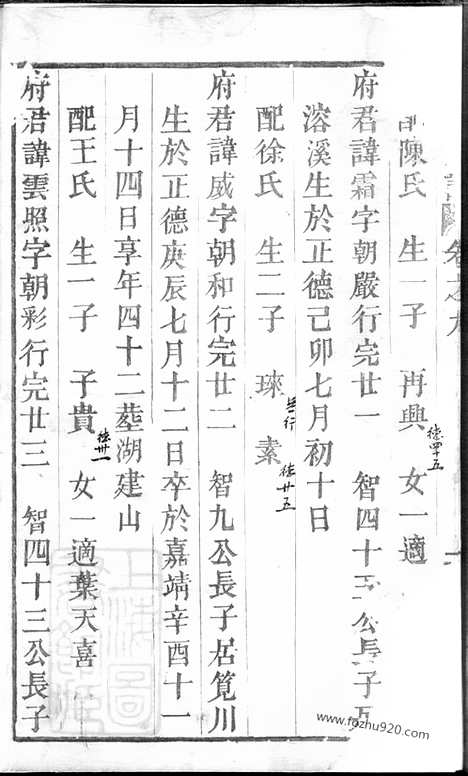 配陳氏　生一子　再興　德四五　女一適
府君諱霜字朝嚴行完廿一　智四十五公長子
溶溪生於正德己卯七月初十日
配徐氏　生二子　琜　行　素　德廿五
府君諱威字朝和行完廿二　智九公長子居筧川
生於正德庚辰七月十二日卒於嘉靖辛酉十一
月十四日享年四十二塟湖建山
配王氏　生一子　子貴　德卅一　女一適葉天喜
府君諱雲照字朝彩行完廿三　智四十三公長子
卷之九
www.fozhu920.com